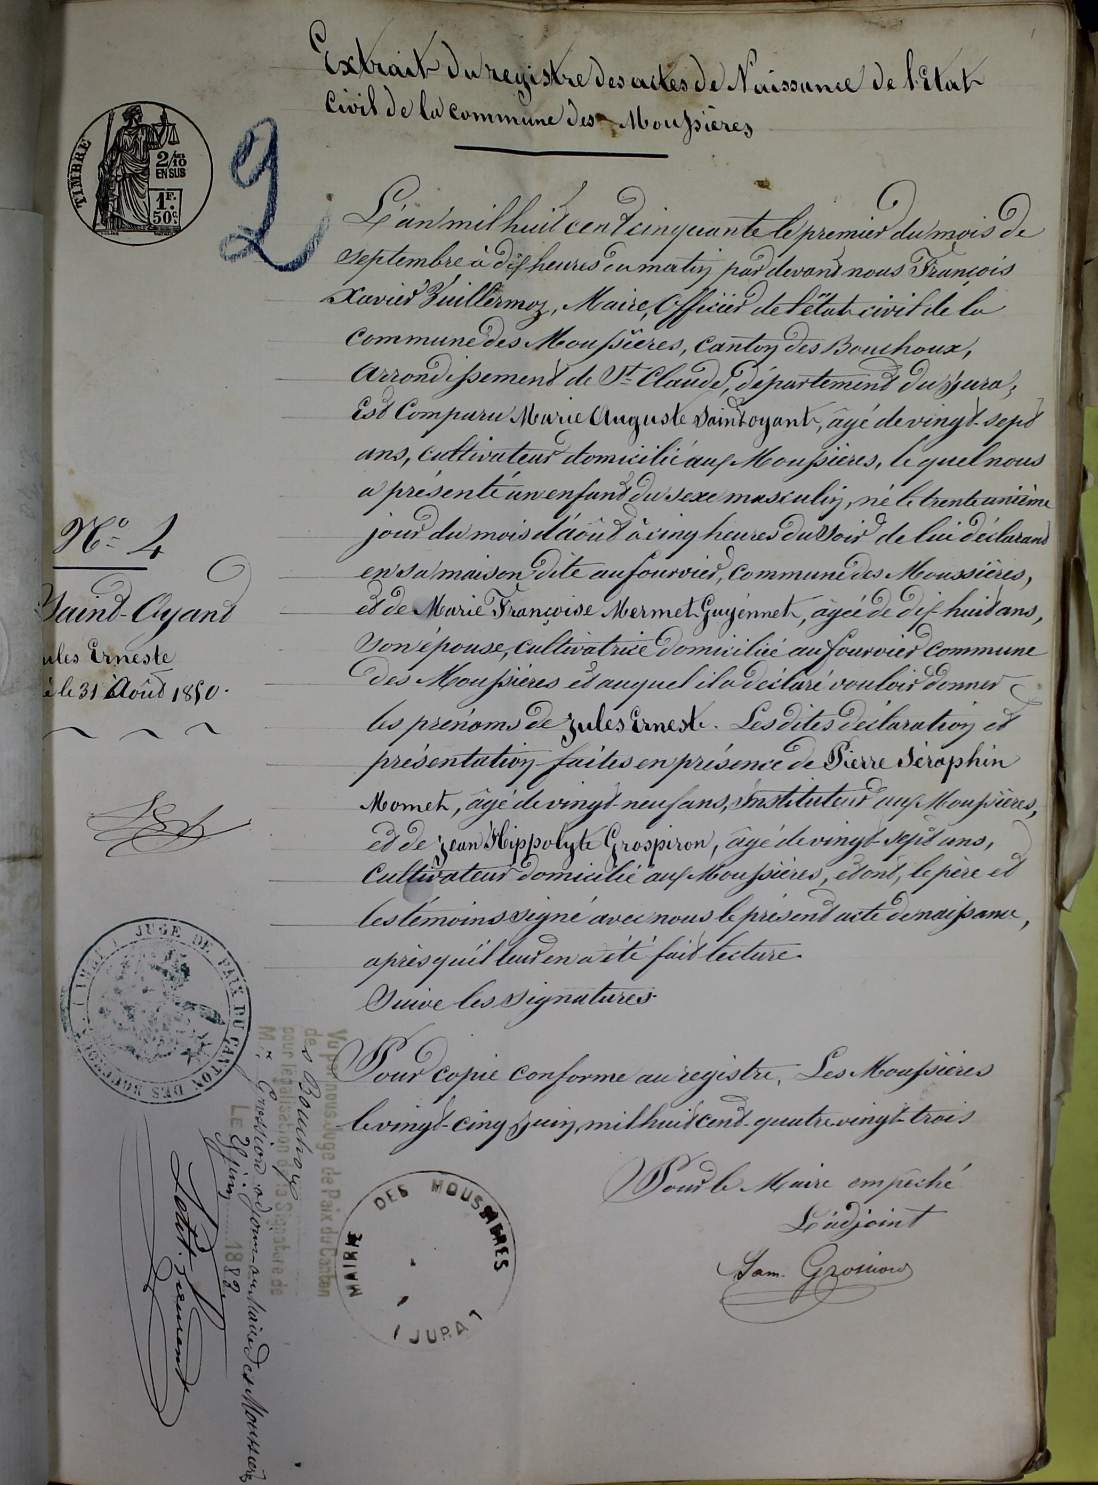 Extrait du registre des actes de Naissance de l'Etat
civil de la commune des Moussières
TIMBRE
2/10
EN SUS
1 F.
50 c.
2
L'an mil huit cent cinquante le premier du mois de
septembre à dix heures du matin par devant nous François
Xavier Vuillermoz, Maire, Officier de l'état civil de la
commune des Moussières, canton des Bouchoux,
arrondissement de St Claude, département du Jura;
Est Comparu Marie Auguste Saintoyant, âgé de vingt-sept
ans, cultivateur domicilié aux Moussières, lequel nous
a présenté un enfant du sexe masculin, né le trente unième
jour du mois d'août à cinq heures du soir de lui déclarant
en sa maison dite au fourvier, commune des Moussières,
et de Marie Françoise Mermet Guyennet, âgée de dix-huit ans,
son épouse, cultivatrice domiciliée au fourvier commune
des Moussières et auquel il a déclaré vouloir donner
les prénoms de Jules Ernest. Les dites déclaration et
présentation faites en présence de Pierre Séraphin
Momet, âgé de vingt-neuf ans, instituteur aux Moussières,
et de Jean Hippolyte Grospiron, âgé de vingt-sept ans,
cultivateur domicilié aux Moussières, et ont, le père et
les témoins signé avec nous le présent acte de naissance,
après qu'il leur en a été fait lecture.
Suive les signatures.
N° 4
Saint-Oyant
ules Erneste
é le 31 Août 1850.
Pour copie conforme au registre, Les Moussières
le vingt-cinq juin, mil huit cent quatre vingt-trois
Pour le Maire empêché
L'adjoint
Grossiord
MAIRIE DES MOUSSIERES
(JURA)
JUGE DE PAIX DU CANTON DES BOUCHOUX (JURA)
Vu par nous Juge de Paix du Canton
des Bouchoux
pour légalisation de la Signature de
Mr Grossiord adjoint au Maire des Moussières
LE juin 188